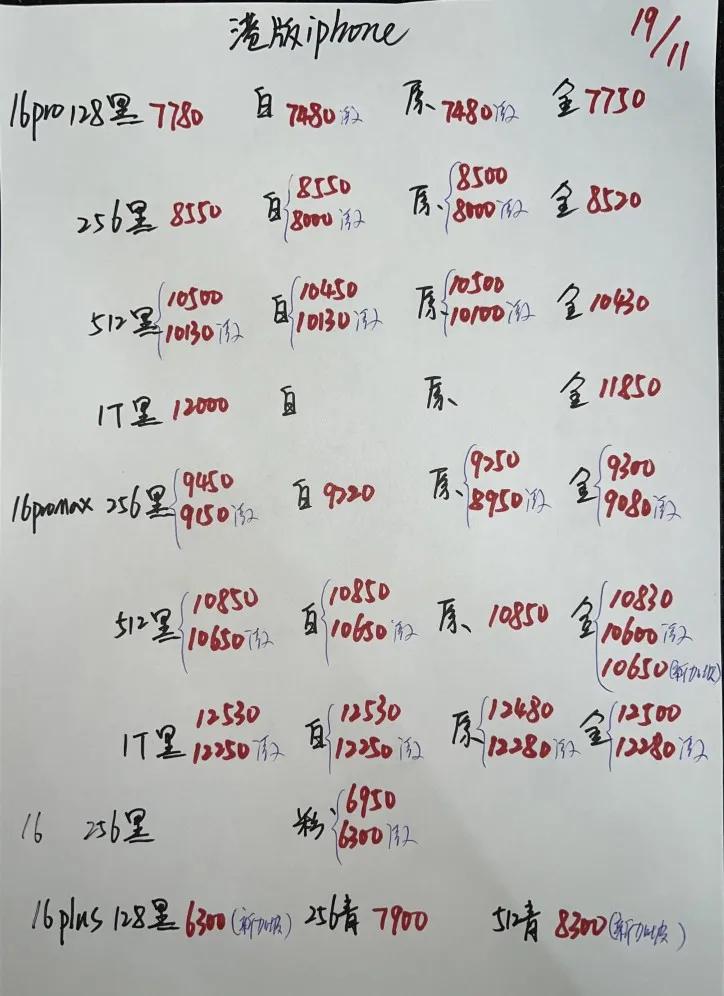 港版iphone
19/11
16pro 128黑 7780 白 7480激 原、7480激 金 7750
256黑 8550 白{8550 8000激 原、{8500 8000激 金 8520
512黑{10500 10130激 白{10450 10130激 原{10500 10100激 金 10430
1T黑 12000 白 原、 金 11850
16promax 256黑{9450 9150激 白 9220 原、{9250 8950激 金{9300 9080激
512黑{10850 10650激 白{10850 10650激 原、10850 金{10830 10600激 10650(新加坡)
1T黑 12530 12250激 白{12530 12250激 原{12480 12280激 金{12500 12280激
16 256黑 粉{6950 6300激
16plus 128黑 6300(新加坡) 256青 7900 512青 8300(新加坡)